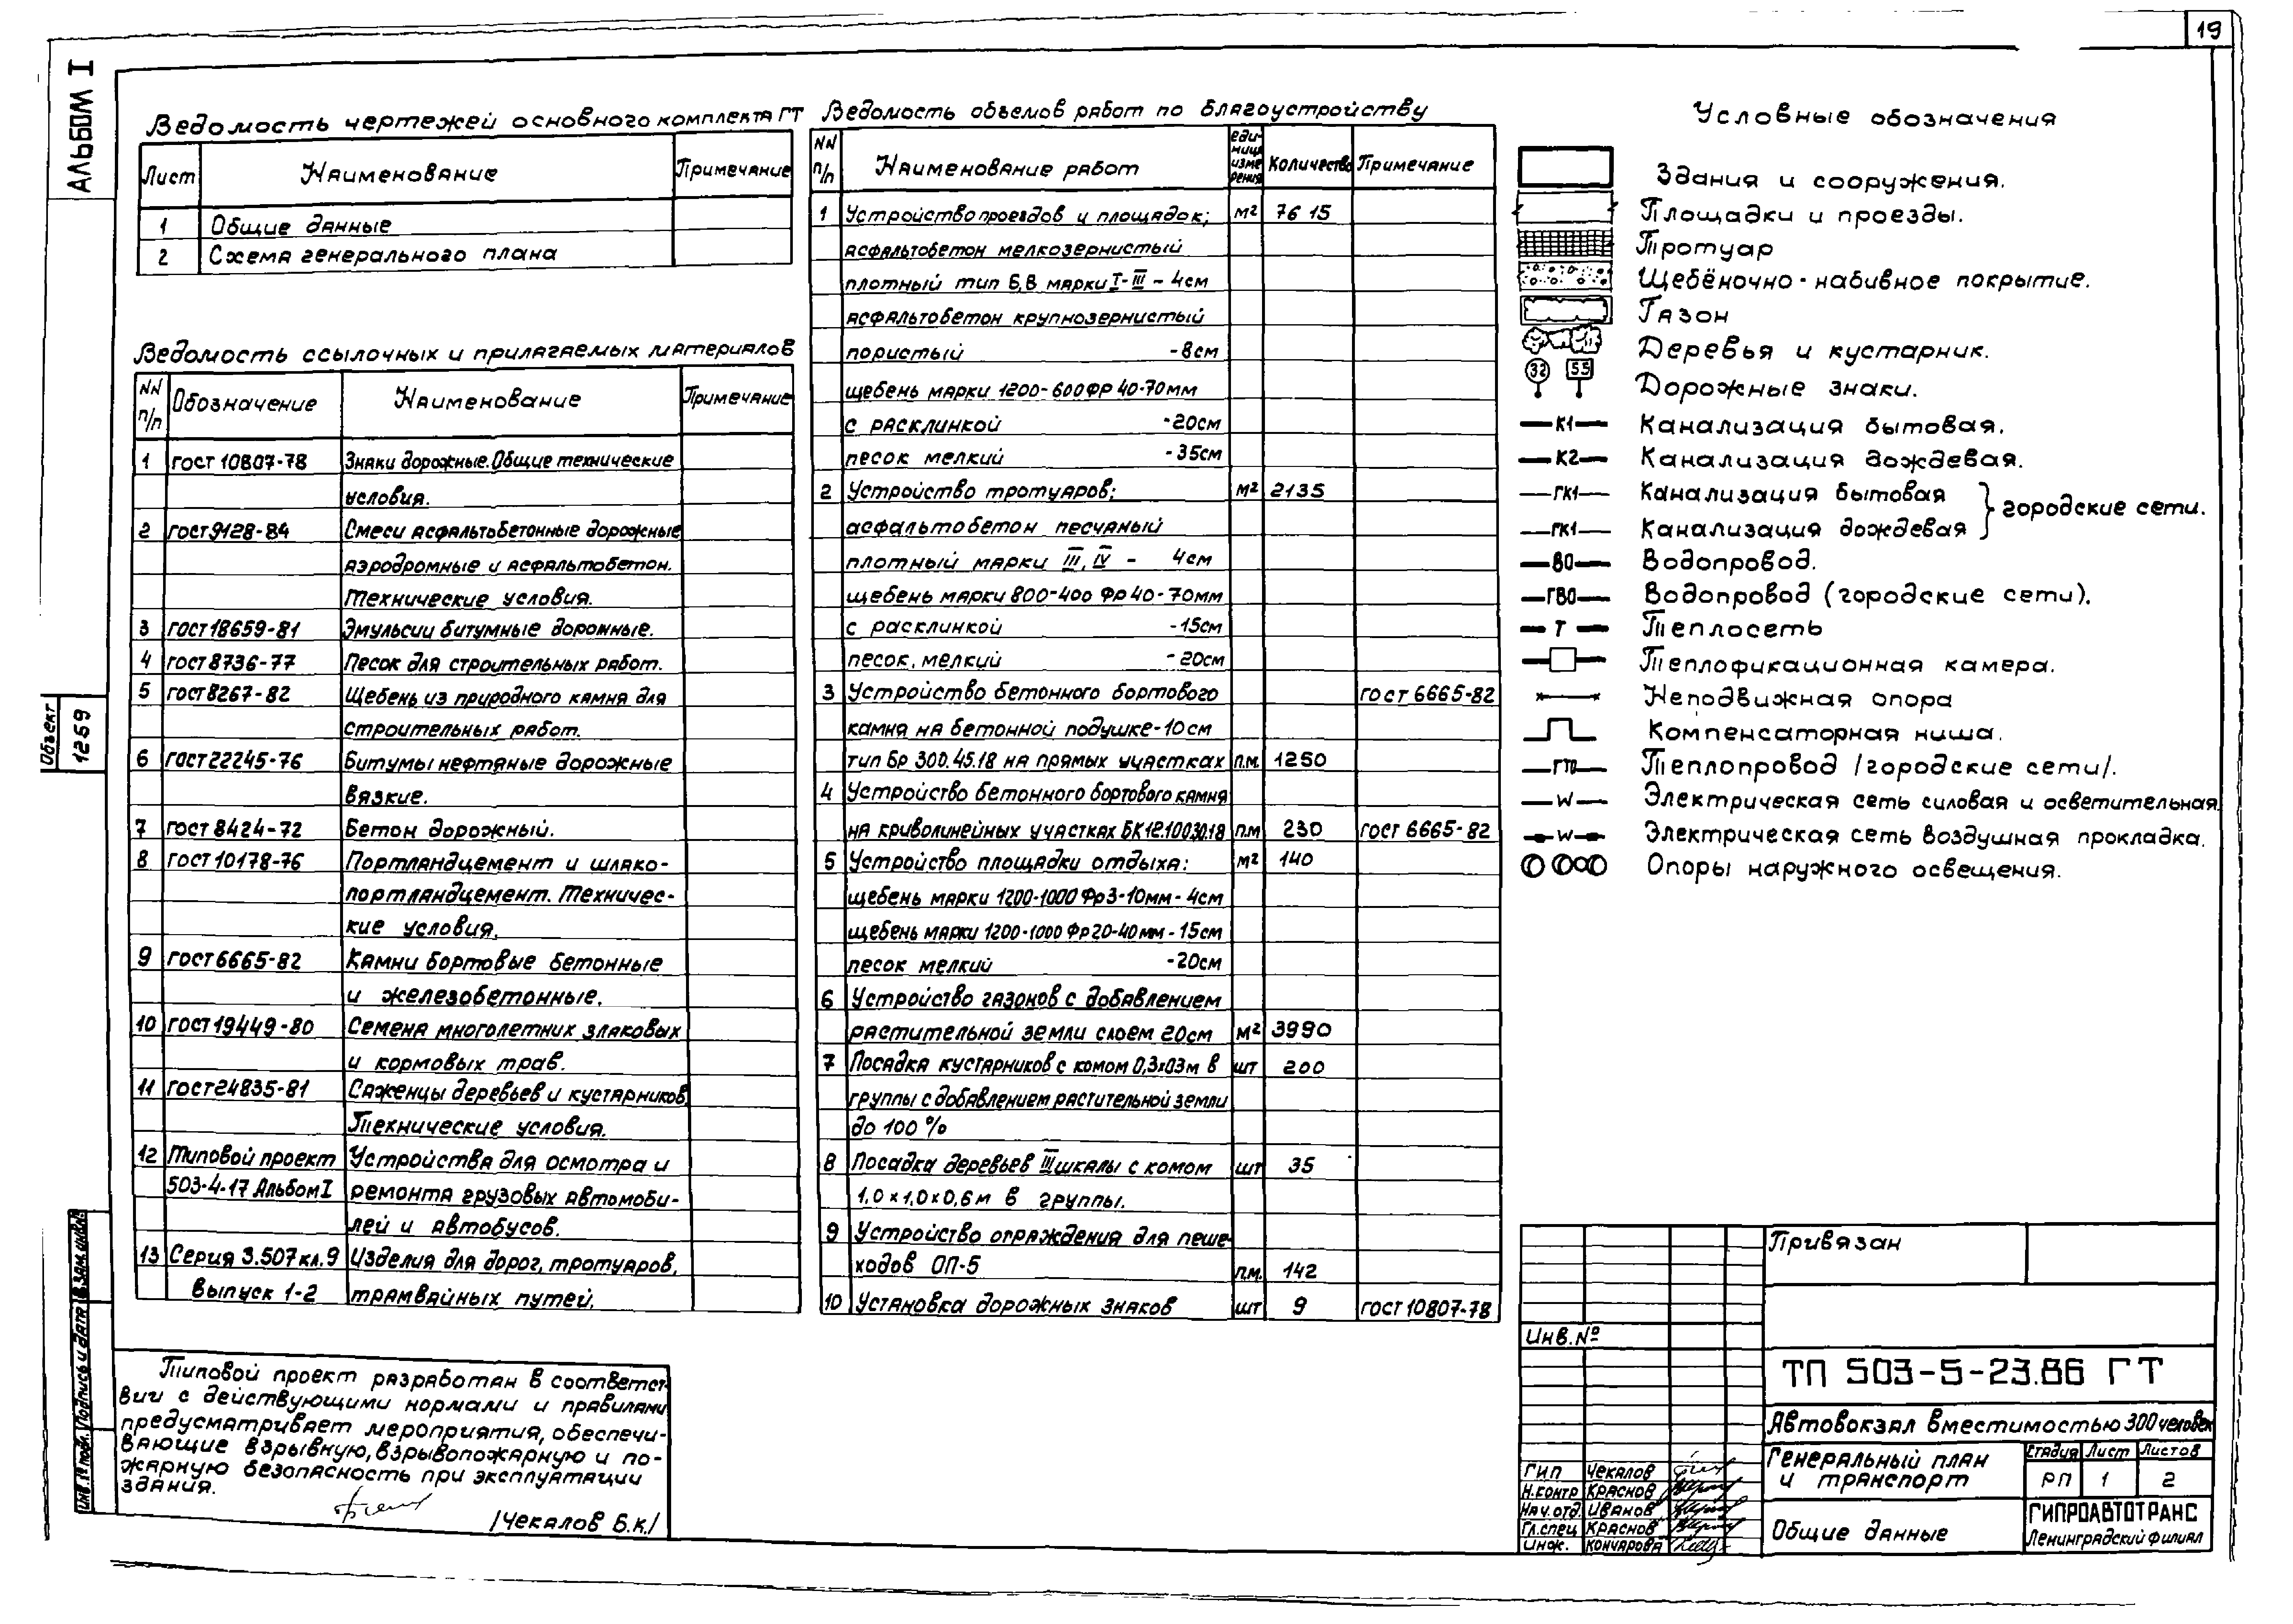 19
АЛЬБОМ I
Объект
1259
Ведомость чертежей основного комплекта ГТ
Лист Наименование Примечание
1 Общие данные
2 Схема генерального плана
Ведомость ссылочных и прилагаемых материалов
NN п/п Обозначение Наименование Примечание
1 ГОСТ 10807-78 Знаки дорожные. Общие технические
условия.
2 ГОСТ 9128-84 Смеси асфальтобетонные дорожные
аэродромные и асфальтобетон.
Технические условия.
3 ГОСТ 18659-81 Эмульсии битумные дорожные.
4 ГОСТ 8736-77 Песок для строительных работ.
5 ГОСТ 8267-82 Щебень из природного камня для
строительных работ.
6 ГОСТ 22245-76 Битумы нефтяные дорожные
вязкие.
7 ГОСТ 8424-72 Бетон дорожный.
8 ГОСТ 10178-76 Портландцемент и шлако-
портландцемент. Техничес-
кие условия.
9 ГОСТ 6665-82 Камни бортовые бетонные
и железобетонные.
10 ГОСТ 19449-80 Семена многолетник злаковых
и кормовых трав.
11 ГОСТ 24835-81 Саженцы деревьев и кустарников
Технические условия.
12 Типовой проект Устройства для осмотра и
503-4-17 Альбом I ремонта грузовых автомоби-
лей и автобусов.
13 Серия 3.507кл.9 Изделия для дорог, тротуаров,
Выпуск 1-2 трамвайных путей.
Ведомость объемов работ по благоустройству
NN п/п Наименование работ еди- ница изме рения Количество Примечание
1 Устройство проездов и площадок; м² 7615
асфальтобетон мелкозернистый
плотный тип Б,В марки I-III - 4см
асфальтобетон крупнозернистый
пористый -8см
щебень марки 1200-600 Фр 40-70мм
с расклинкой -20см
песок мелкий -35см
2 Устройство тротуаров; м² 2135
асфальтобетон песчаный
плотный марки III, IV - 4см
щебень марки 800-400 Фр 40-70мм
с расклинкой -15см
песок, мелкий -20см
3 Устройство бетонного бортового ГОСТ 6665-82
камня на бетонной подушке-10см
тип Бр 300.45.18 на прямых участках п.м. 1250
4 Устройство бетонного бортового камня
на криволинейных участках п.м 230 ГОСТ 6665-82
5 Устройство площадки отдыха: м² 140
щебень марки 1200-1000 Фр 3-10мм - 4см
щебень марки 1200-1000 Фр 20-40мм - 15см
песок мелкий -20см
6 Устройство газонов с добавлением
растительной земли слоем 20см м² 3990
7 Посадка кустарников с комом 0,3х03м в шт 200
группы с добавлением растительной земли
до 100 %
8 Посадка деревьев III шкалы с комом шт 35
1,0х1,0х0,6м в группы.
9 Устройство ограждения для пеше-
ходов ОП-5 п.м. 142
10 Установка дорожных знаков шт 9 ГОСТ 10807-78
Условные обозначения
Здания и сооружения.
Площадки и проезды.
Тротуар
Щебёночно-набивное покрытие.
Газон
Деревья и кустарник.
32 5.5 Дорожные знаки.
К1 Канализация бытовая.
К2 Канализация дождевая.
ГК1 Канализация бытовая
городские сети.
ГК1 Канализация дождевая
ВО Водопровод.
ГВО Водопровод (городские сети).
Т Теплосеть
Теплофикационная камера.
Неподвижная опора
Компенсаторная ниша.
ГТ0 Теплопровод /городские сети/.
W Электрическая сеть силовая и осветительная
W Электрическая сеть воздушная прокладка.
Опоры наружного освещения.
Типовой проект разработан в соответст-
вии с действующими нормами и правилами
предусматривает мероприятия, обеспечи-
вающие взрывную, взрывопожарную и по-
жарную безопасность при эксплуатации
здания.
/Чекалов Б.К./
Взам. инв.№
Подпись и дата
Инв. № подл.
Привязан
Инв. №
ТП 503-5-23.86 ГТ
Автовокзал вместимостью 300 человек
Генеральный план
и транспорт
Стадия Лист Листов
РП 1 2
Общие данные
ГИПРОАВТОТРАНС
Ленинградский филиал
ГИП Чекалов
Н.контр Краснов
Нач.отд. Иванов
Гл.спец Краснов
Инж. Кончарова